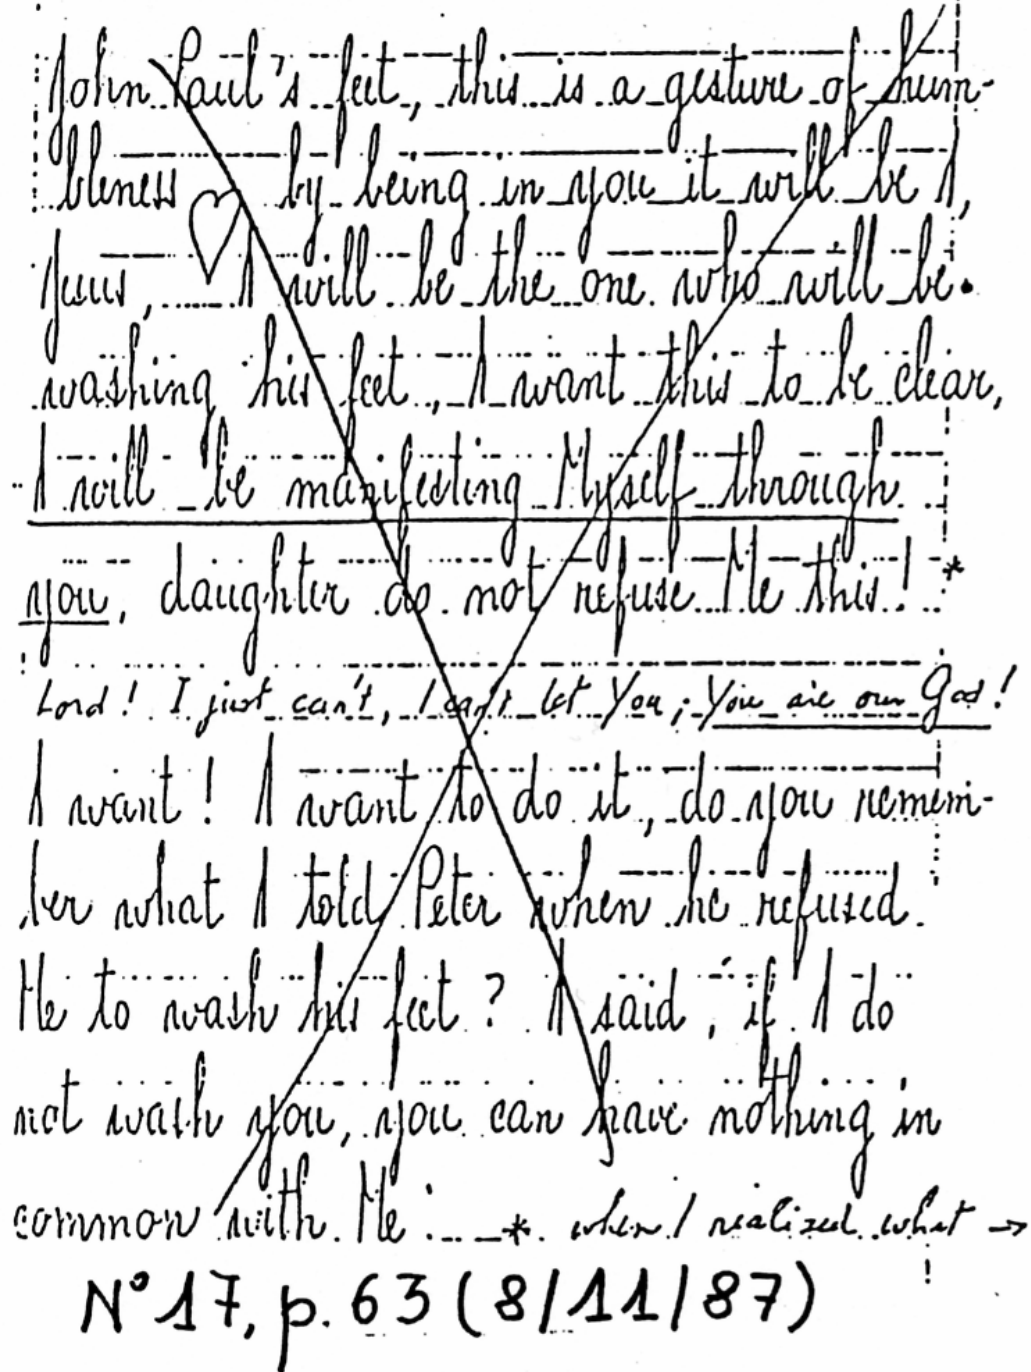 John Paul's feet, this is a gesture of hum-
bleness by being in you it will be I,
Jesus, I will be the one who will be.
washing his feet, I want this to be clear,
I will be manifesting Myself through
you, daughter do not refuse Me this! *
Lord! I just can't, I can't let You; You are our God!
I want! I want to do it, do you remem-
ber what I told Peter when he refused
Me to wash his feet? I said, if I do
not wash you, you can have nothing in
common with Me. * when I realized what →
N° 17, p. 63 (8/11/87)